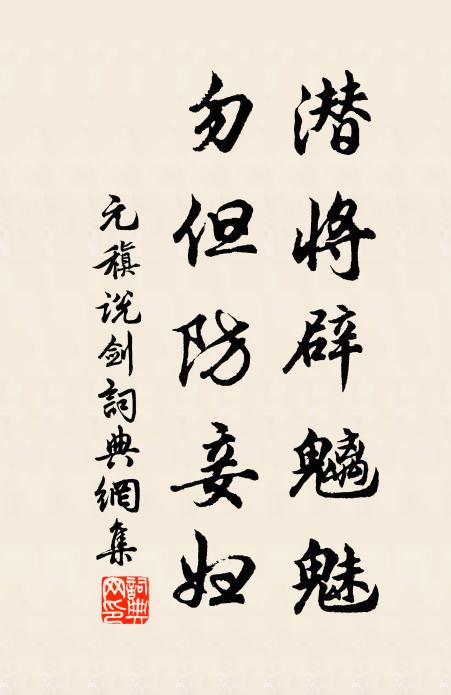 潜将辟魑魅
勿但防妾妇
元稹说剑詞典網集
詞典网印